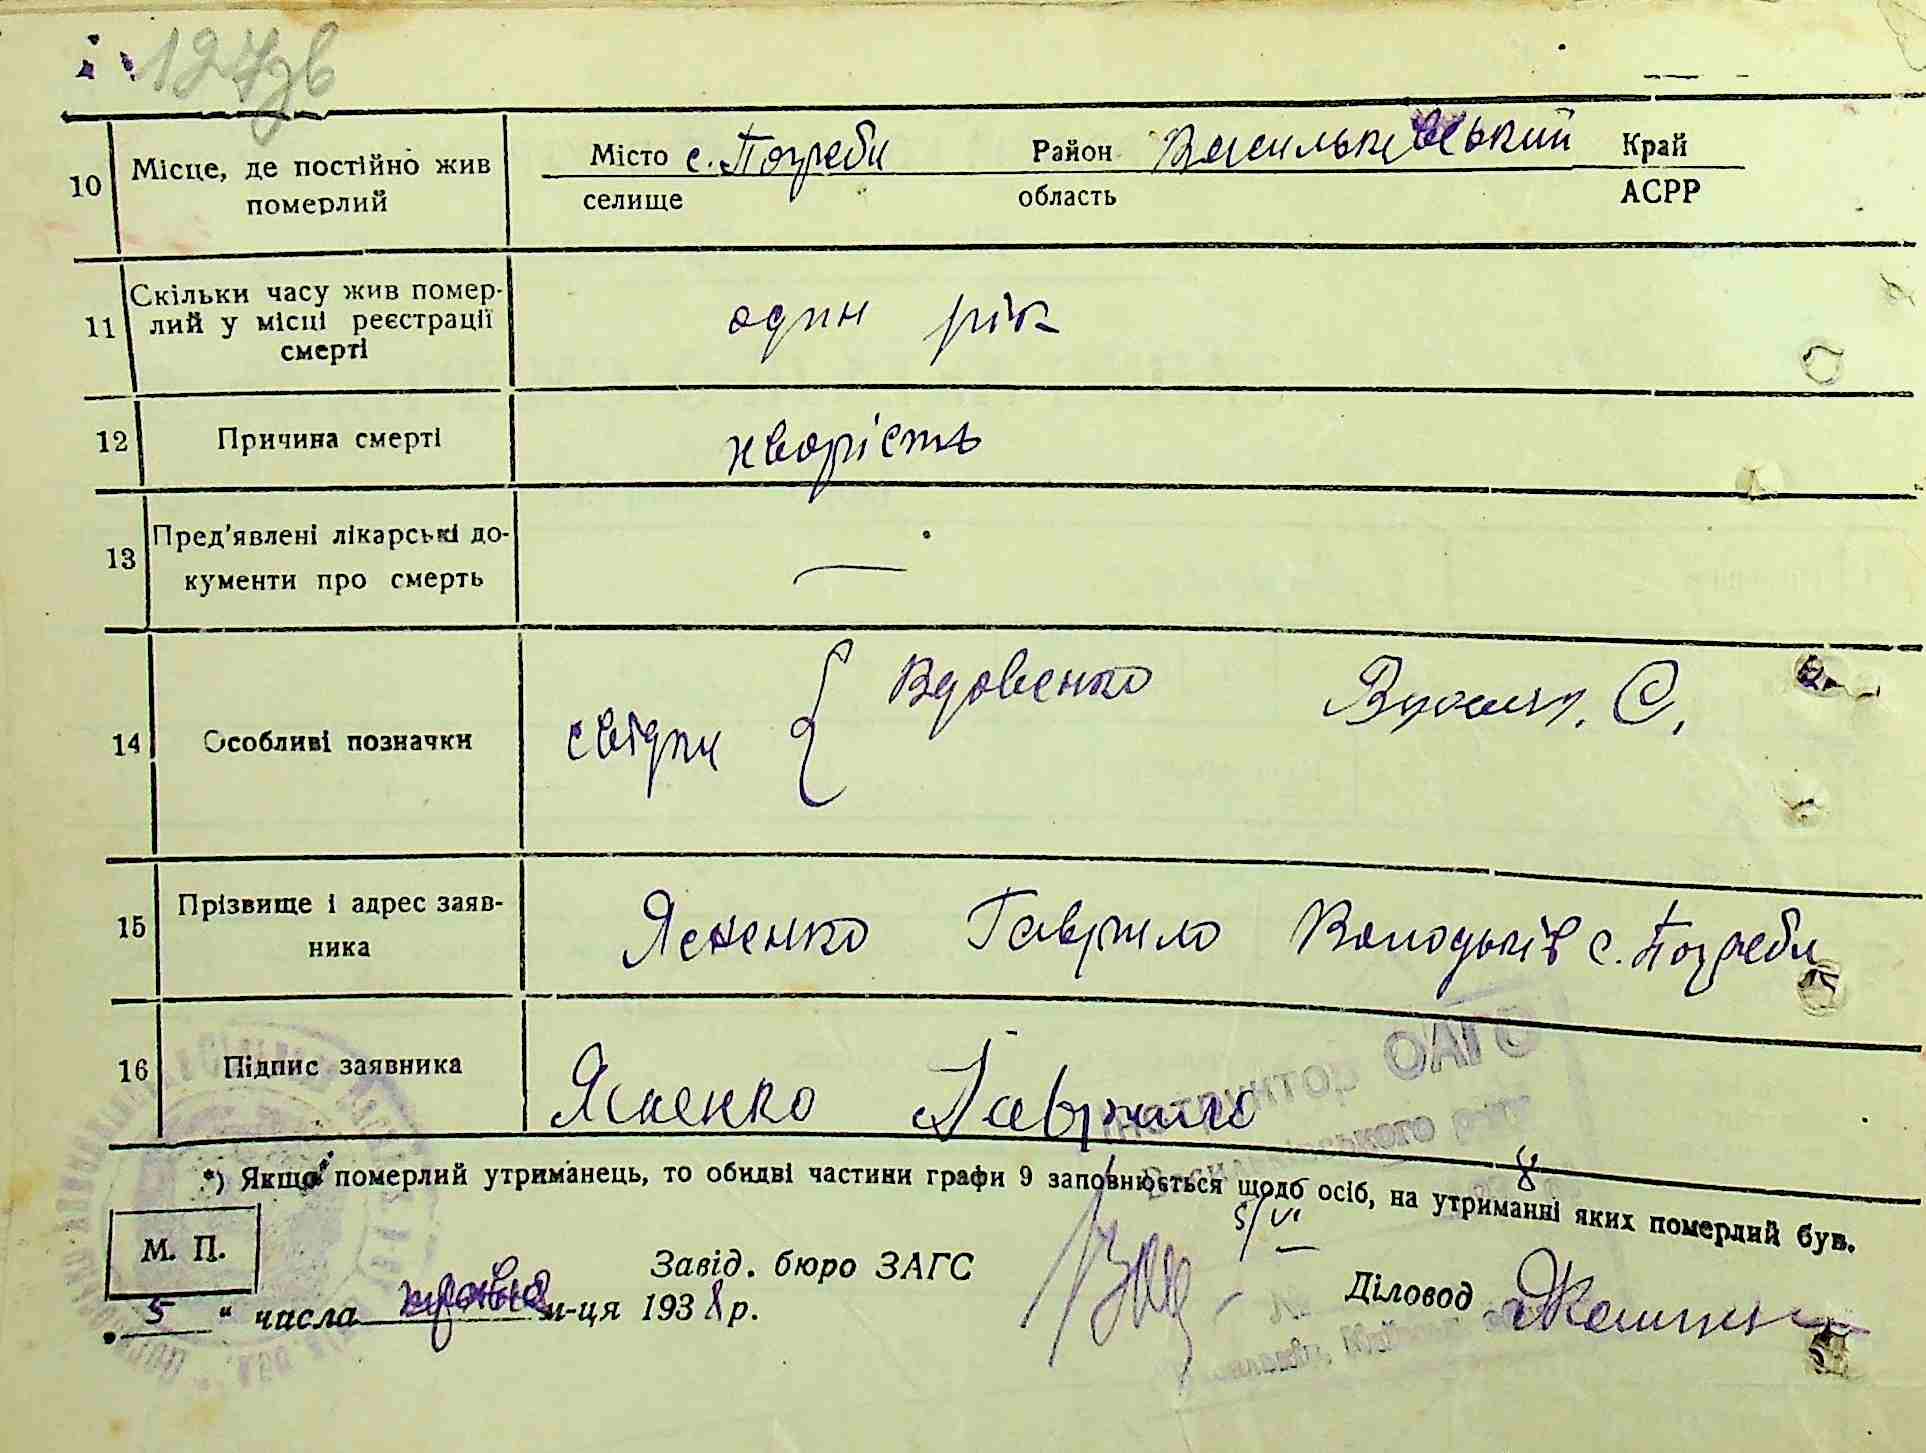 127зв
10 Місце, де постійно жив померлий
Місто с. Погреби Район Васильківський Край
селище область АСРР
11 Скільки часу жив помер-
лий у місці реєстрації
смерті
один рік
12 Причина смерті хворість
13 Пред'явлені лікарські до-
кументи про смерть
—
14 Особливі позначки свідки { Вдовенко С.
15 Прізвище і адрес заяв-
ника
Ясненко Гаврило с. Погреби
16 Підпис заявника Ясненко Гаврило
Інструктор ОАГС
*) Якщо померлий утриманець, то обидві частини графи 9 заповнюється щодо осіб, на утриманні яких померлий був.
5/VI
М. П.
Завід. бюро ЗАГС
Діловод
„ 5 “ числа м-ця 1938 р.